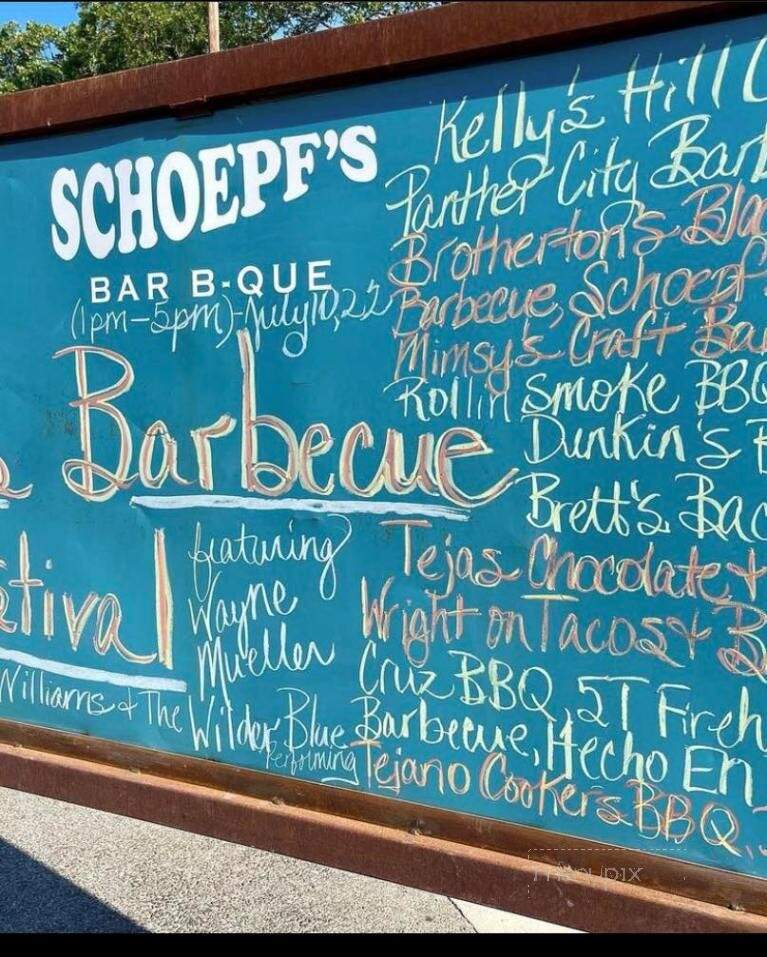 SCHOEPF'S
BAR B-QUE
(1pm-5pm)-July 10, 22
Barbecue
stival
featuring
Wayne
Mueller
Williams + The Wilder Blue
Performing
Kelly's Hill
Panther City Bar
Brotherton's Bla
Barbecue, Schoepf'
Mimsy's Craft Ba
Rollin Smoke BBQ
Dunkin's B
Brett's Bac
Tejas Chocolate +
Wright on Tacos + B
Cruz BBQ, 5T Fireh
Barbecue, Hecho En
Tejano Cookers BBQ,
menupix